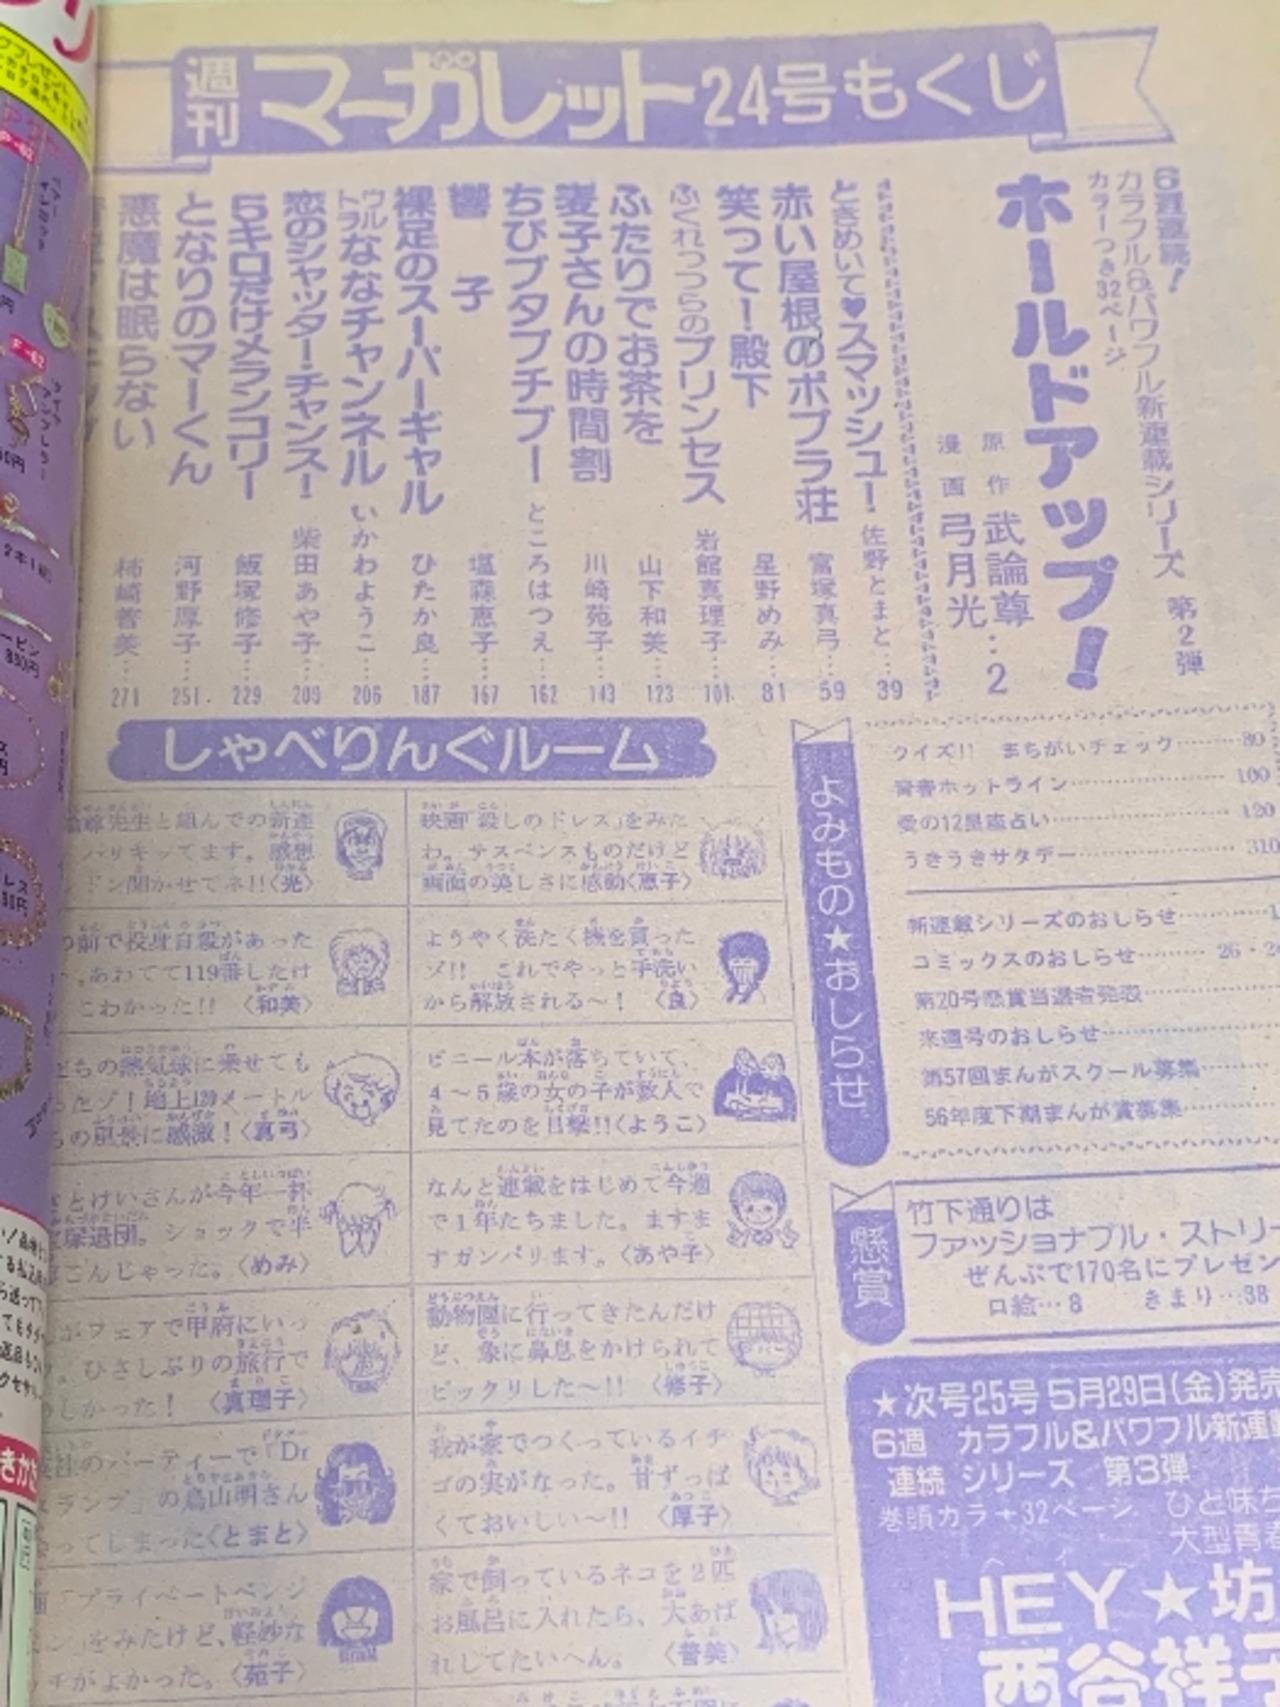 週刊 マーガレット 24号もくじ
6週連続!
カラフル&パワフル新連載シリーズ 第2弾
カラーつき32ページ
ホールドアップ!
原作 武論尊
漫画 弓月光 … 2
ときめいて♥スマッシュ! 佐野とまと … 39
赤い屋根のポプラ荘 富塚真弓 … 59
笑って!殿下 星野めみ … 81
ふくれっつらのプリンセス 岩館真理子 … 101
ふたりでお茶を 山下和美 … 123
麦子さんの時間割 川崎苑子 … 143
ちびブタプチブー ところはつえ … 162
響子 塩森恵子 … 167
裸足のスーパーギャル ひたか良 … 187
ウルトラななチャンネル いかわようこ … 206
恋のシャッター・チャンス! 柴田あや子 … 209
5キロだけメランコリー 飯塚修子 … 229
となりのマーくん 河野厚子 … 251
悪魔は眠らない 柿崎普美 … 271
しゃべりんぐルーム
先生と組んでの新連
バリキッてます。感想
ドン聞かせてネ!!〈光〉
映画「殺しのドレス」をみた
わ。サスペンスものだけど
画面の美しさに感動〈恵子〉
の前で投身自殺があった
、あわてて119番したけ
こわかった!!〈和美〉
ようやく洗たく機を買った
ゾ!! これでやっと手洗い
から解放される〜!〈良〉
どもの熱気球に乗せても
ったゾ!地上120メートル
らの風景に感激!〈真弓〉
ビニール本が落ちていて、
4〜5歳の女の子が数人で
見てたのを目撃!!〈ようこ〉
とけいさんが今年一杯
塚退団。ショックで半
ごんじゃった。〈めみ〉
なんと連載をはじめて今週
で1年たちました。ますま
すガンバリます。〈あや子〉
がフェアで甲府にいっ
。ひさしぶりの旅行で
しかった!〈真理子〉
動物園に行ってきたんだけ
ど、象に鼻息をかけられて
ビックリした〜!!〈修子〉
社のパーティーで「Dr
スランプ」の鳥山明さん
会ってしまった〈とまと〉
我が家でつくっているイチ
ゴの実がなった。甘ずっぱ
くておいしい〜!!〈厚子〉
画「プライベートベンジ
ン」をみたけど、軽妙な
ッチがよかった。〈苑子〉
家で飼っているネコを2匹
お風呂に入れたら、大あば
れしてたいへん。〈普美〉
よみもの★おしらせ
クイズ!! まちがいチェック … 80
青春ホットライン … 100
愛の12星座占い … 120
うきうきサタデー … 310
新連載シリーズのおしらせ … 1
コミックスのおしらせ … 26・2
第20号懸賞当選者発表
来週号のおしらせ
第57回まんがスクール募集
56年度下期まんが賞募集
懸賞
竹下通りは
ファッショナブル・ストリー
ぜんぶで170名にプレゼン
口絵…8 きまり…38
★次号25号 5月29日(金)発売
6週連続 カラフル&パワフル新連載シリーズ 第3弾
巻頭カラー+32ページ ひと味ち
大型青春
HEY★坊
西谷祥子